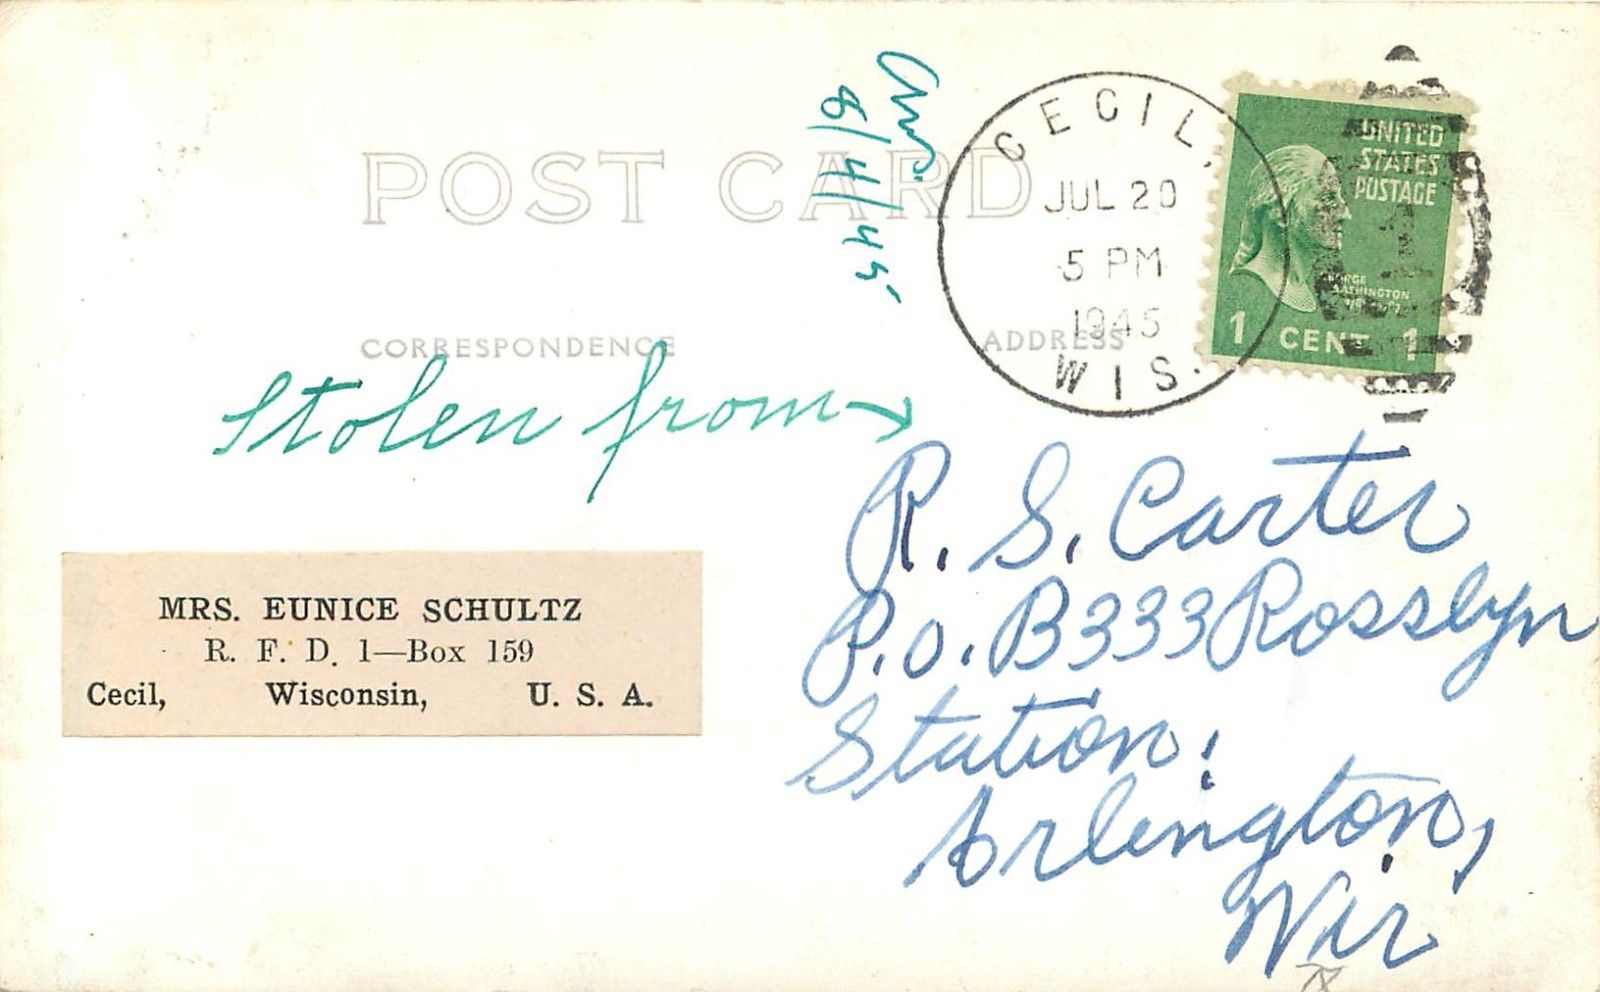 POST CARD
CORRESPONDENCE
ADDRESS
CECIL,
JUL 20
5 PM
1945
WIS.
UNITED
STATES
POSTAGE
GEORGE
WASHINGTON
1 CENT 1
8/4/45
Stolen from →
R. S. Carter
P.O. B333 Rosslyn
Station,
Arlington,
Vir
MRS. EUNICE SCHULTZ
R. F. D. 1—Box 159
Cecil, Wisconsin, U. S. A.